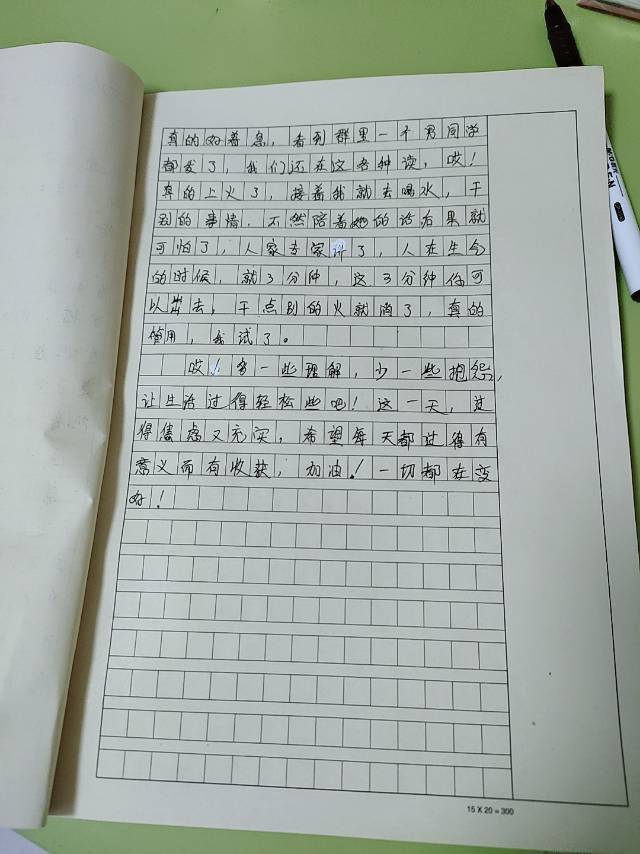 真的好着急，看到群里一个男同学
都发了，我们还在这各种读，哎！
真的上火了，接着我就去喝水，干
别的事情，不然陪着她的话后果就
可怕了，人家专家讲了，人在生气
的时候，就3分钟，这3分钟你可
以出去，干点别的火就消了，真的
管用，我试了。
哎！多一些理解，少一些抱怨，
让生活过得轻松些吧！这一天，过
得焦虑又充实，希望每天都过得有
意义而有收获，加油！一切都在变
好！
15 X 20 = 300